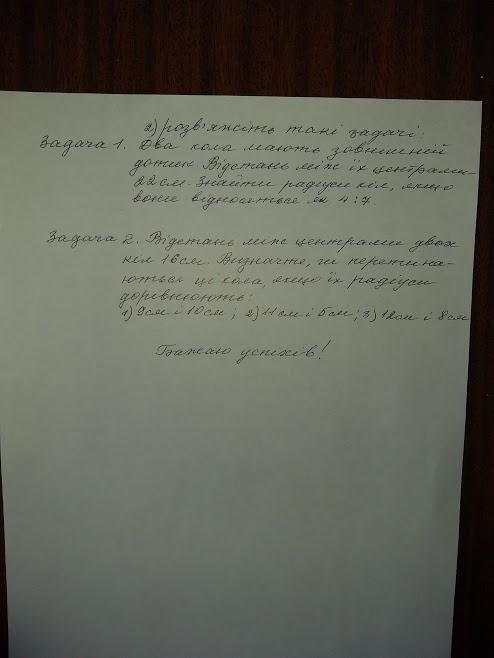 2) розв'яжіть такі задачі:
Задача 1. Два кола мають зовнішній
дотик. Відстань між їх центрами
22 см. Знайти радіуси кіл, якщо
вони відносяться як 4:7.
Задача 2. Відстань між центрами двох
кіл 16 см. Визначте, чи перетина-
ються ці кола, якщо їх радіуси
дорівнюють:
1) 9 см і 10 см; 2) 11 см і 5 см; 3) 12 см і 8 см
Бажаю успіхів!